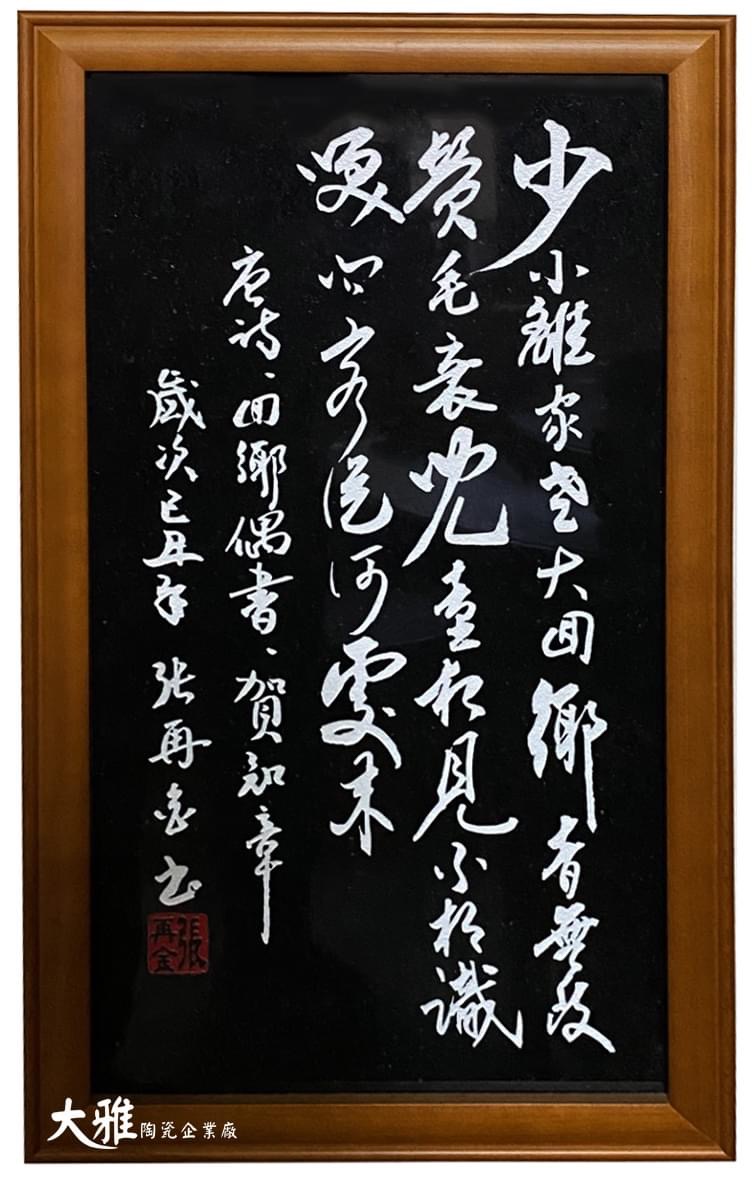 少小離家老大囬鄉音無改
鬢毛衰兒童相見不相識
咲问客從何處来
唐诗、囬鄉偶書、賀知章
歲次己丑年 张再金书
張再金
大雅陶瓷企業廠